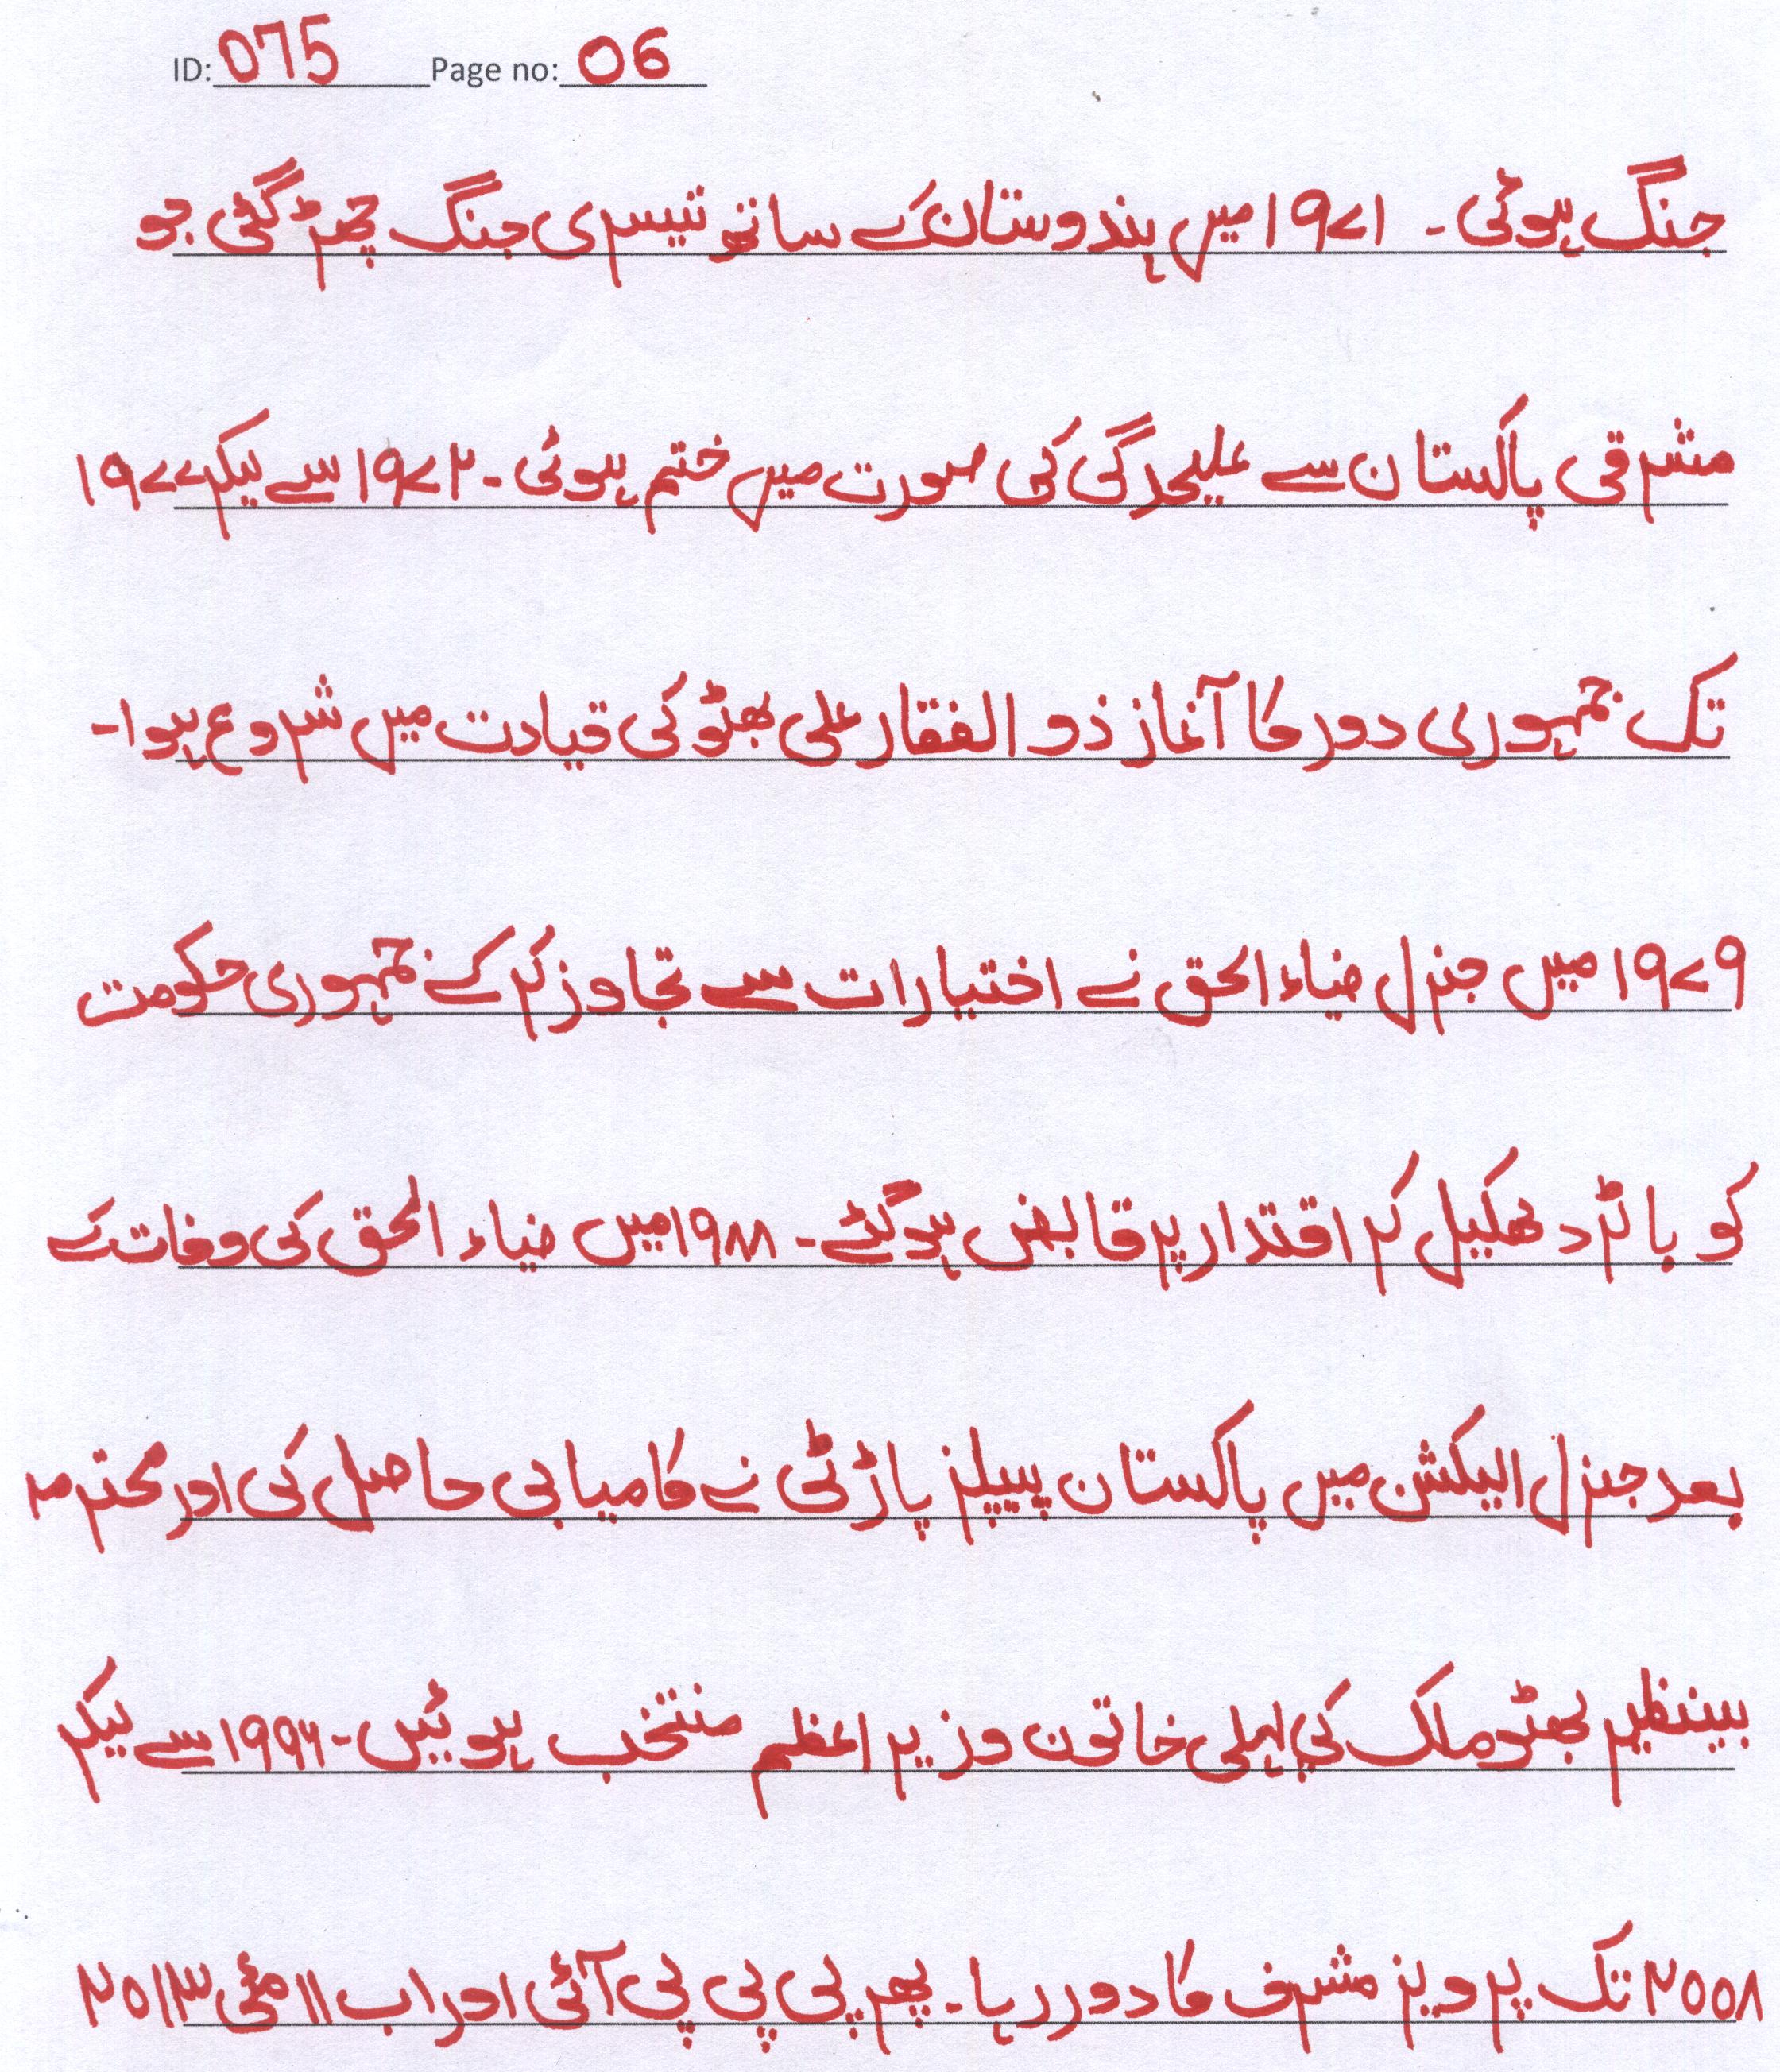 ID: 075 Page no: 06
جنگ ہوئی۔ ۱۹۷۱ میں ہندوستان کے ساتھ تیسری جنگ چھڑ گئی جو
مشرقی پاکستان سے علیحدگی کی صورت میں ختم ہوئی۔ ۱۹۷۲ سے لیکر ۱۹۷۷
تک جمہوری دور کا آغاز ذوالفقار علی بھٹو کی قیادت میں شروع ہوا۔
۱۹۷۹ میں جنرل ضیاء الحق نے اختیارات سے تجاوز کر کے جمہوری حکومت
کو بائر دھکیل کر اقتدار پر قابض ہوگئے۔ ۱۹۸۸ میں ضیاء الحق کی وفات کے
بعد جنرل الیکشن میں پاکستان پیپلز پاڑٹی نے کامیابی حاصل کی اور محترمہ
بینظیر بھٹو ملک کی پہلی خاتون وزیر اعظم منتخب ہوئیں۔ ۱۹۹۶ سے لیکر
۲۰۰۸ تک پرویز مشرف کا دور رہا۔ پھر پی پی پی آئی اور اب ۱۱ مئی ۲۰۱۳